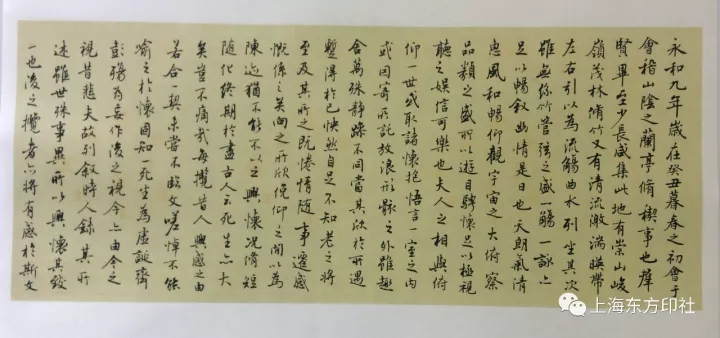 永和九年歲在癸丑暮春之初會于
會稽山陰之蘭亭脩稧事也羣
賢畢至少長咸集此地有崇山峻
嶺茂林脩竹又有清流激湍暎帶
左右引以為流觴曲水列坐其次
雖無絲竹管弦之盛一觴一詠亦
足以暢敘幽情是日也天朗氣清
惠風和暢仰觀宇宙之大俯察
品類之盛所以遊目騁懷足以極視
聽之娛信可樂也夫人之相與俯
仰一世或取諸懷抱悟言一室之內
或因寄所託放浪形骸之外雖趣
舍萬殊靜躁不同當其欣於所遇
暫得於己快然自足不知老之將
至及其所之既惓情隨事遷感
慨係之矣向之所欣俛仰之間以為
陳迹猶不能不以之興懷況脩短
隨化終期於盡古人云死生亦大
矣豈不痛哉每攬昔人興感之由
若合一契未嘗不臨文嗟悼不能
喻之於懷固知一死生為虛誕齊
彭殤為妄作後之視今亦由今之
視昔悲夫故列敘時人錄其所
述雖世殊事異所以興懷其致
一也後之攬者亦將有感於斯文
上海东方印社